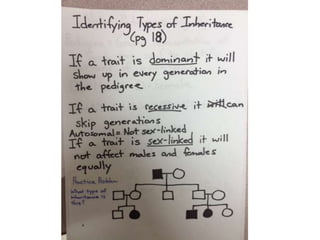 Identifying Types of Inheritance
(pg 18)
If a trait is dominant it will
show up in every generation in
the pedigree
If a trait is recessive it will can
skip generations
Autosomal = Not sex-linked
If a trait is sex-linked it will
not affect males and females
equally
Practice Problem
What type of
inheritance is
this?